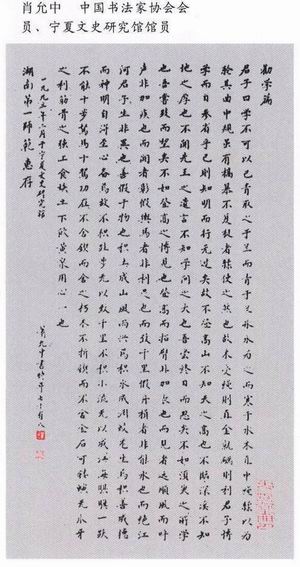 肖允中　中国书法家协会会
员、宁夏文史研究馆馆员
勸學篇
君子曰學不可以已青取之于蓝而青于蓝冰水为之而寒于水木直中绳輮以为
轮其曲中规虽有槁暴不复挺者輮使之然也故木受绳则直金就砺则利君子博
学而日参省乎己则知明而行无过矣故不登高山不知天之高也不临深溪不知
地之厚也不闻先王之遗言不知学问之大也吾尝终日而思矣不如须臾之所学
也吾尝跂而望矣不如登高之博见也登高而招臂非加长也而见者远顺风而呼
声非加疾也而闻者彰假舆马者非利足也而致千里假舟楫者非能水也而绝江
河君子生非异也善假于物也积土成山风雨兴焉积水成渊蛟龙生焉积善成德
而神明自得圣心备焉故不积跬步无以致千里不积小流无以成江海骐骥一跃
不能十步驽马十驾功在不舍锲而舍之朽木不折锲而不舍金石可镂螾无爪牙
之利筋骨之强上食埃土下饮黄泉用心一也
一九九五年六月于宁夏文史研究馆
湖南第一师範惠存
肖允中书时年七十有八